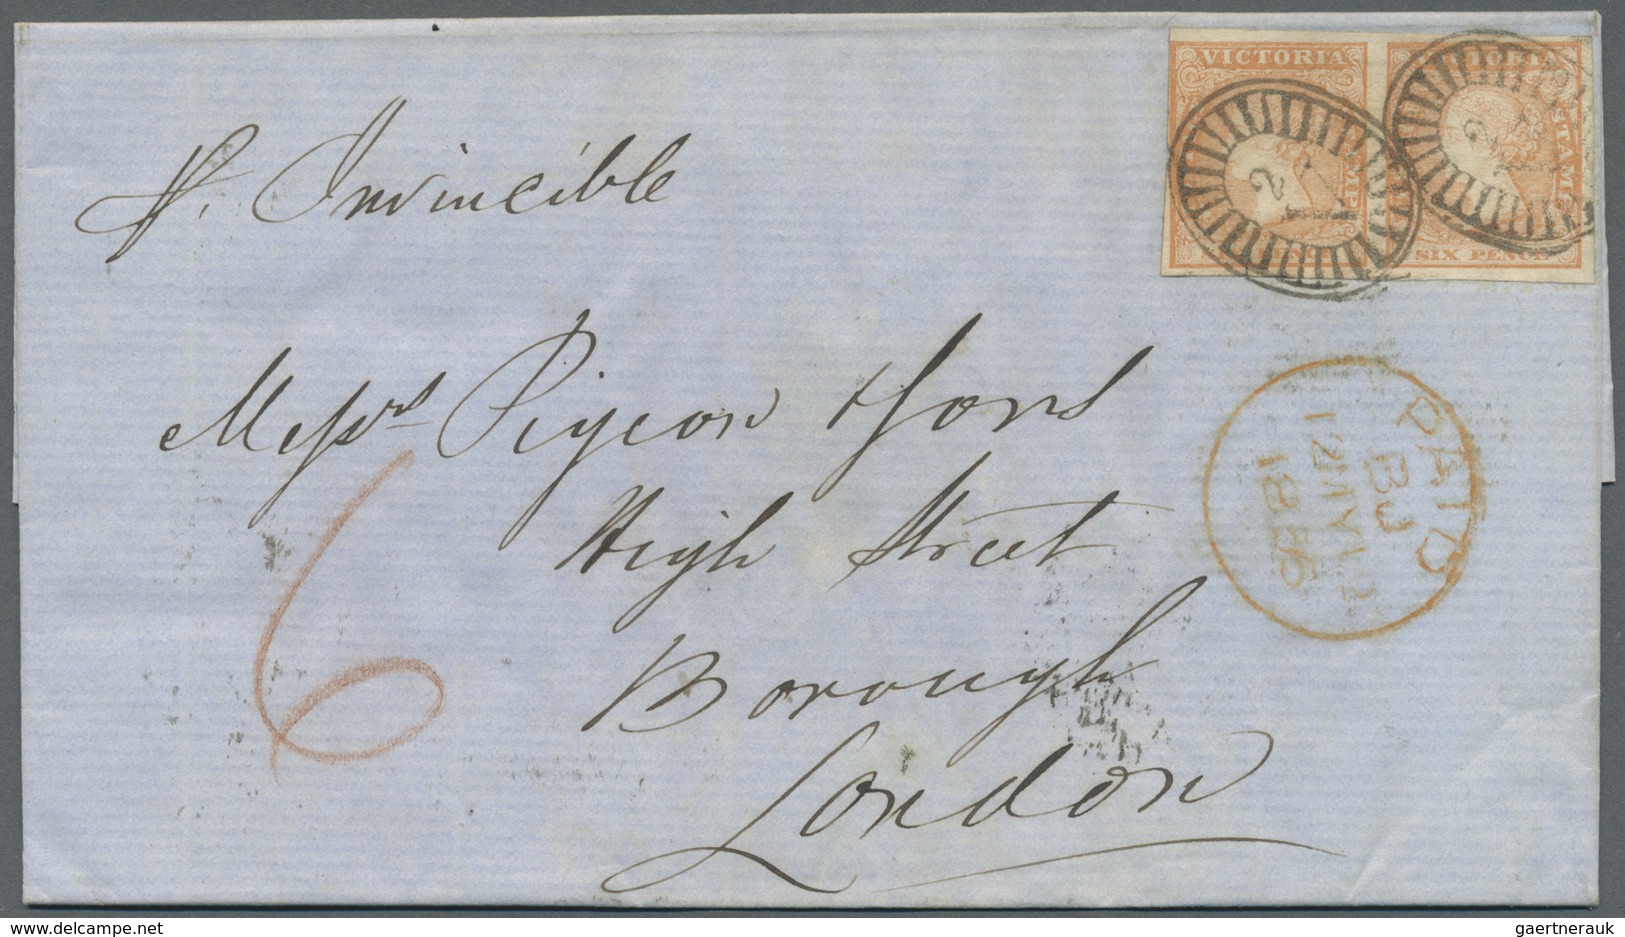 VICTORIA
VICTORIA
STAMP
2
2
SIX PENCE
p. Invincible
Messrs Pigeon & Sons
High Street
Borough
London
6
PAID
BJ
12 MY 12
1856
delcampe.net
gaertnerauk